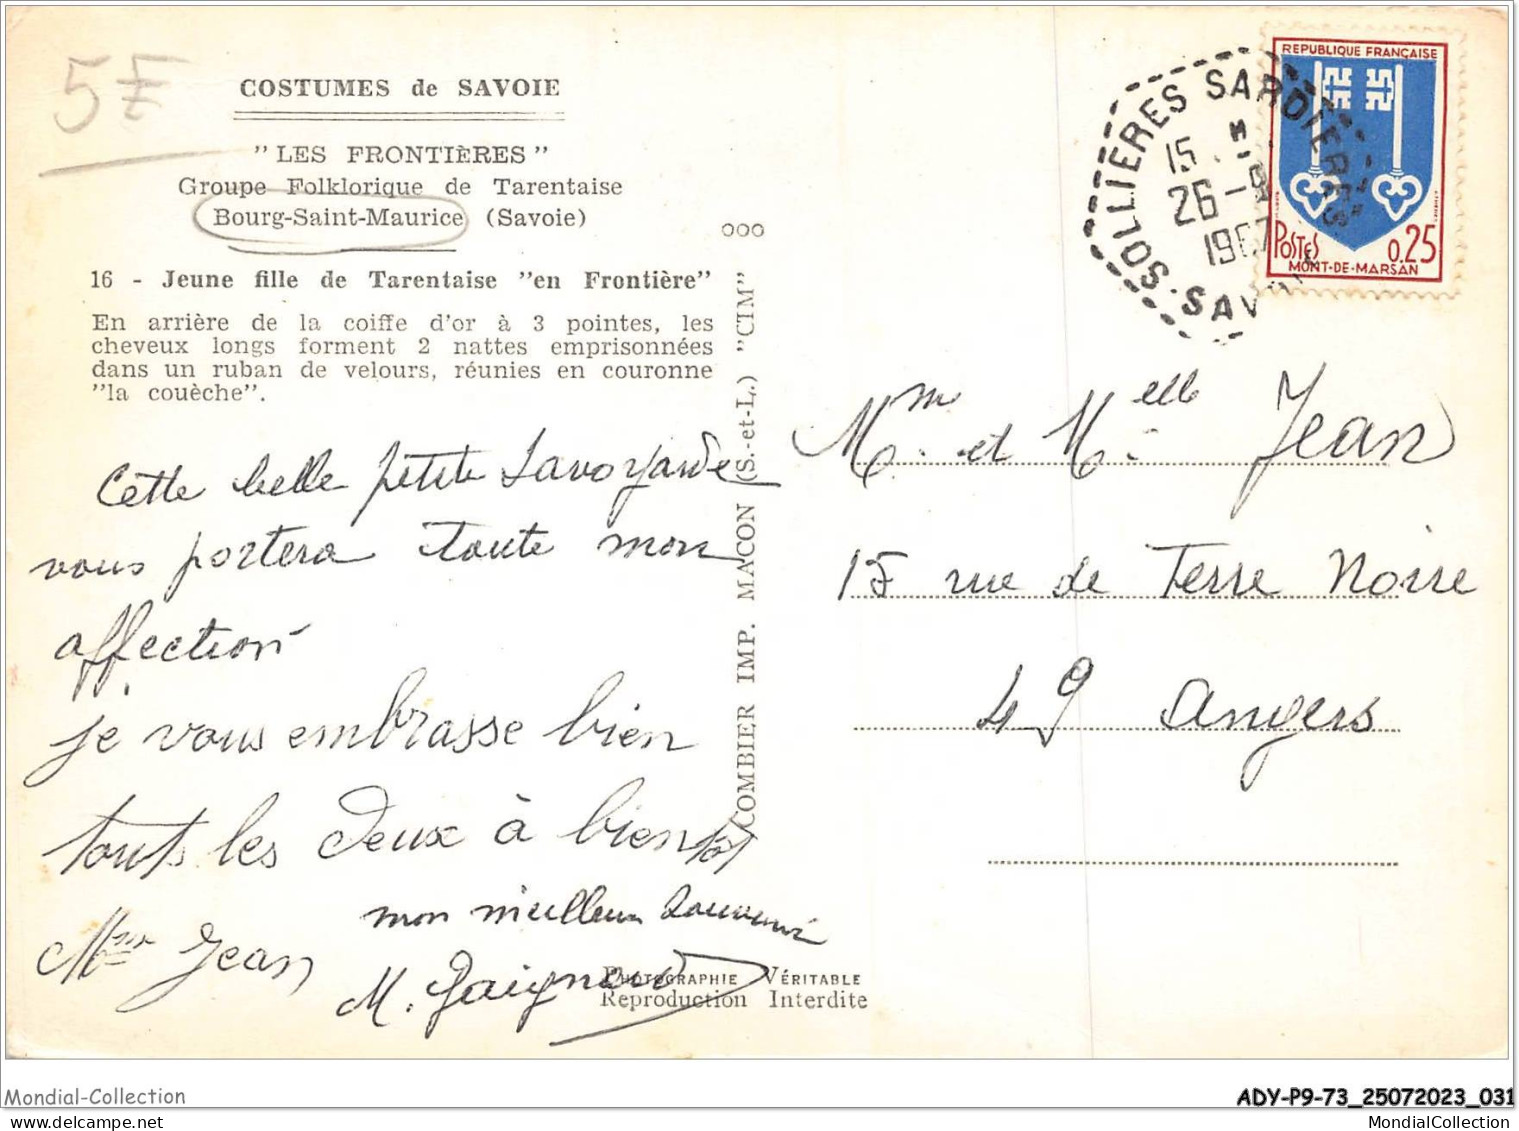 5F
COSTUMES de SAVOIE
"LES FRONTIÈRES"
Groupe Folklorique de Tarentaise
Bourg-Saint-Maurice (Savoie)
000
16 - Jeune fille de Tarentaise "en Frontière"
En arrière de la coiffe d'or à 3 pointes, les
cheveux longs forment 2 nattes emprisonnées
dans un ruban de velours, réunies en couronne
"la couèche".
Cette belle petite Savoyarde
vous portera toute mon
affection
je vous embrasse bien
touts les deux à bientôt
Mme Jean
mon meilleur souvenir
M. Gaignard
PHOTOGRAPHIE VÉRITABLE
Reproduction Interdite
COMBIER IMP. MACON (S.-et-L.) "CIM"
SOLLIÈRES SARDIERES
15 H
26-8
1967
SAVOIE
REPUBLIQUE FRANÇAISE
POSTES 0.25
MONT-DE-MARSAN
Mm. et Melle Jean
15 rue de Terre Noire
49 Angers
Mondial-Collection
ADY-P9-73_25072023_031
MondialCollection